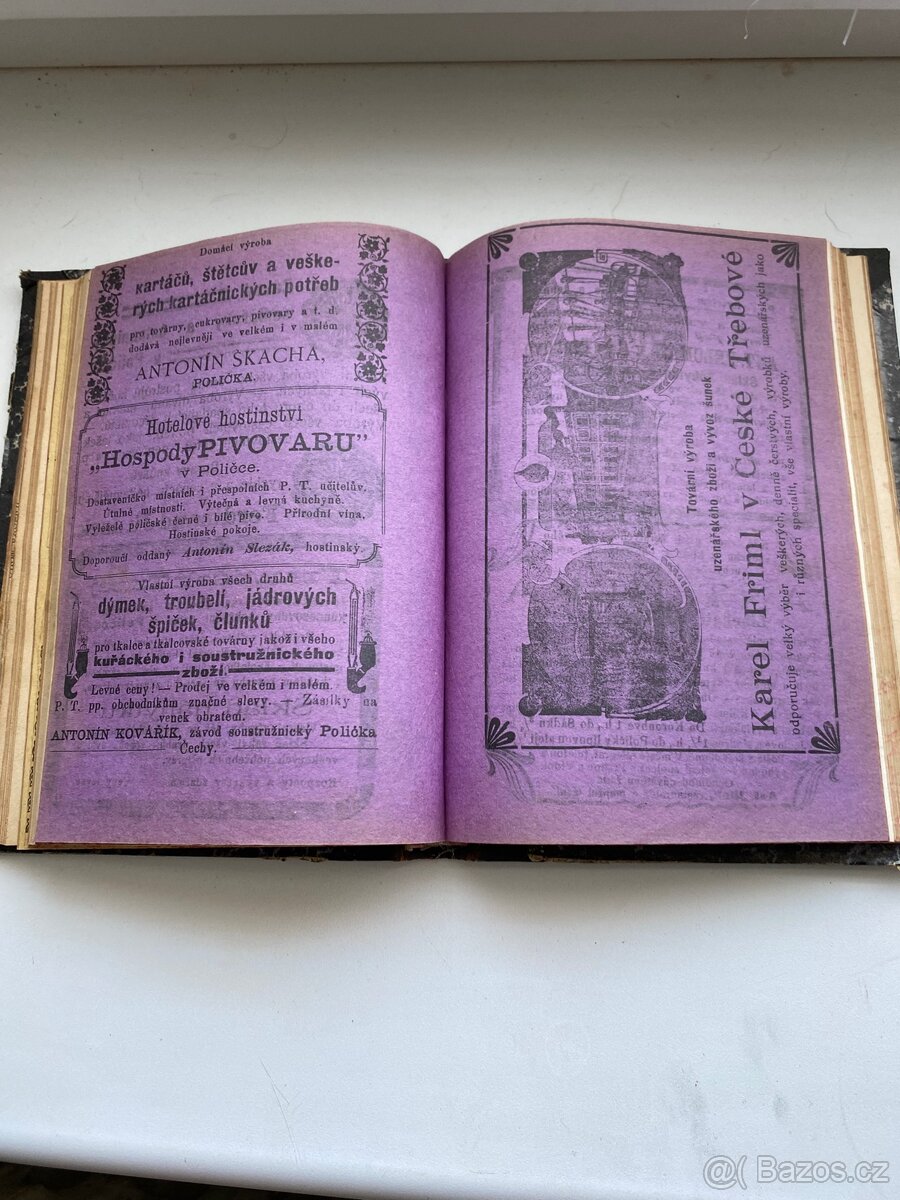 Domácí výroba
kartáčů, štětcův a veške-
rých kartáčnických potřeb
pro továrny, cukrovary, pivovary a t. d.
dodává nejlevněji ve velkém i v malém
ANTONÍN SKACHA,
POLIČKA.
Hotelové hostinství
„Hospody PIVOVARU"
v Poličce.
Dostaveníčko místních i přespolních P. T. učitelův.
Útulné místnosti. Výtečná a levná kuchyně.
Vyleželé poličské černé i bílé pivo. Přírodní vína.
Hostinské pokoje.
Doporoučí oddaný Antonín Slezák, hostinský.
Vlastní výroba všech druhů
dýmek, troubelí, jádrových
špiček, člunků
pro tkalce a tkalcovské továrny jakož i všeho
kuřáckého i soustružnického
zboží.
Levné ceny! — Prodej ve velkém i malém.
P. T. pp. obchodníkům značné slevy. — Zásilky na
venek obratem.
ANTONÍN KOVÁŘÍK, závod soustružnický Polička
Čechy.
Tovární výroba
uzenářského zboží a vývoz šunek
Karel Friml v České Třebové
odporučuje velký výběr veškerých, denně čerstvých, výrobků uzenářských jako
i různých specialit, vše vlastní výroby.
@( Bazos.cz